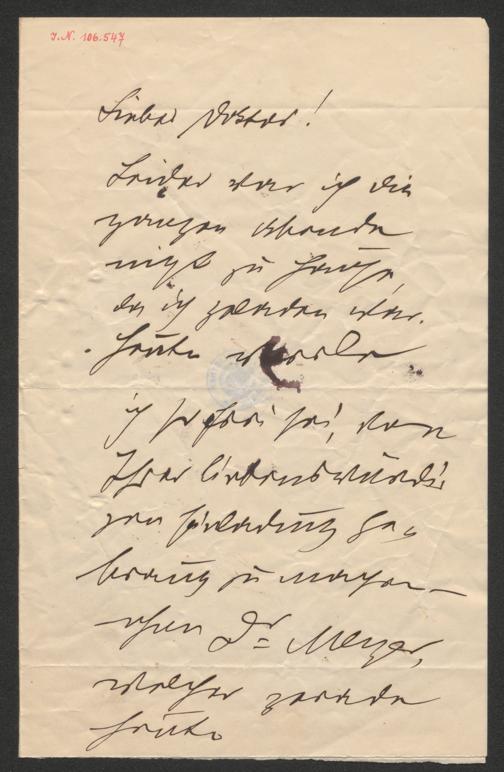 J.N. 106.547
Lieber Doktor!
Leider war ich die
ganzen Abende
nicht zu Hause,
da ich geladen war.
Heute werde
ich so frei sein, von
Ihrer liebenswürdi-
gen Einladung Ge-
brauch zu machen –
Dr Meyer,
welcher gerade
heute